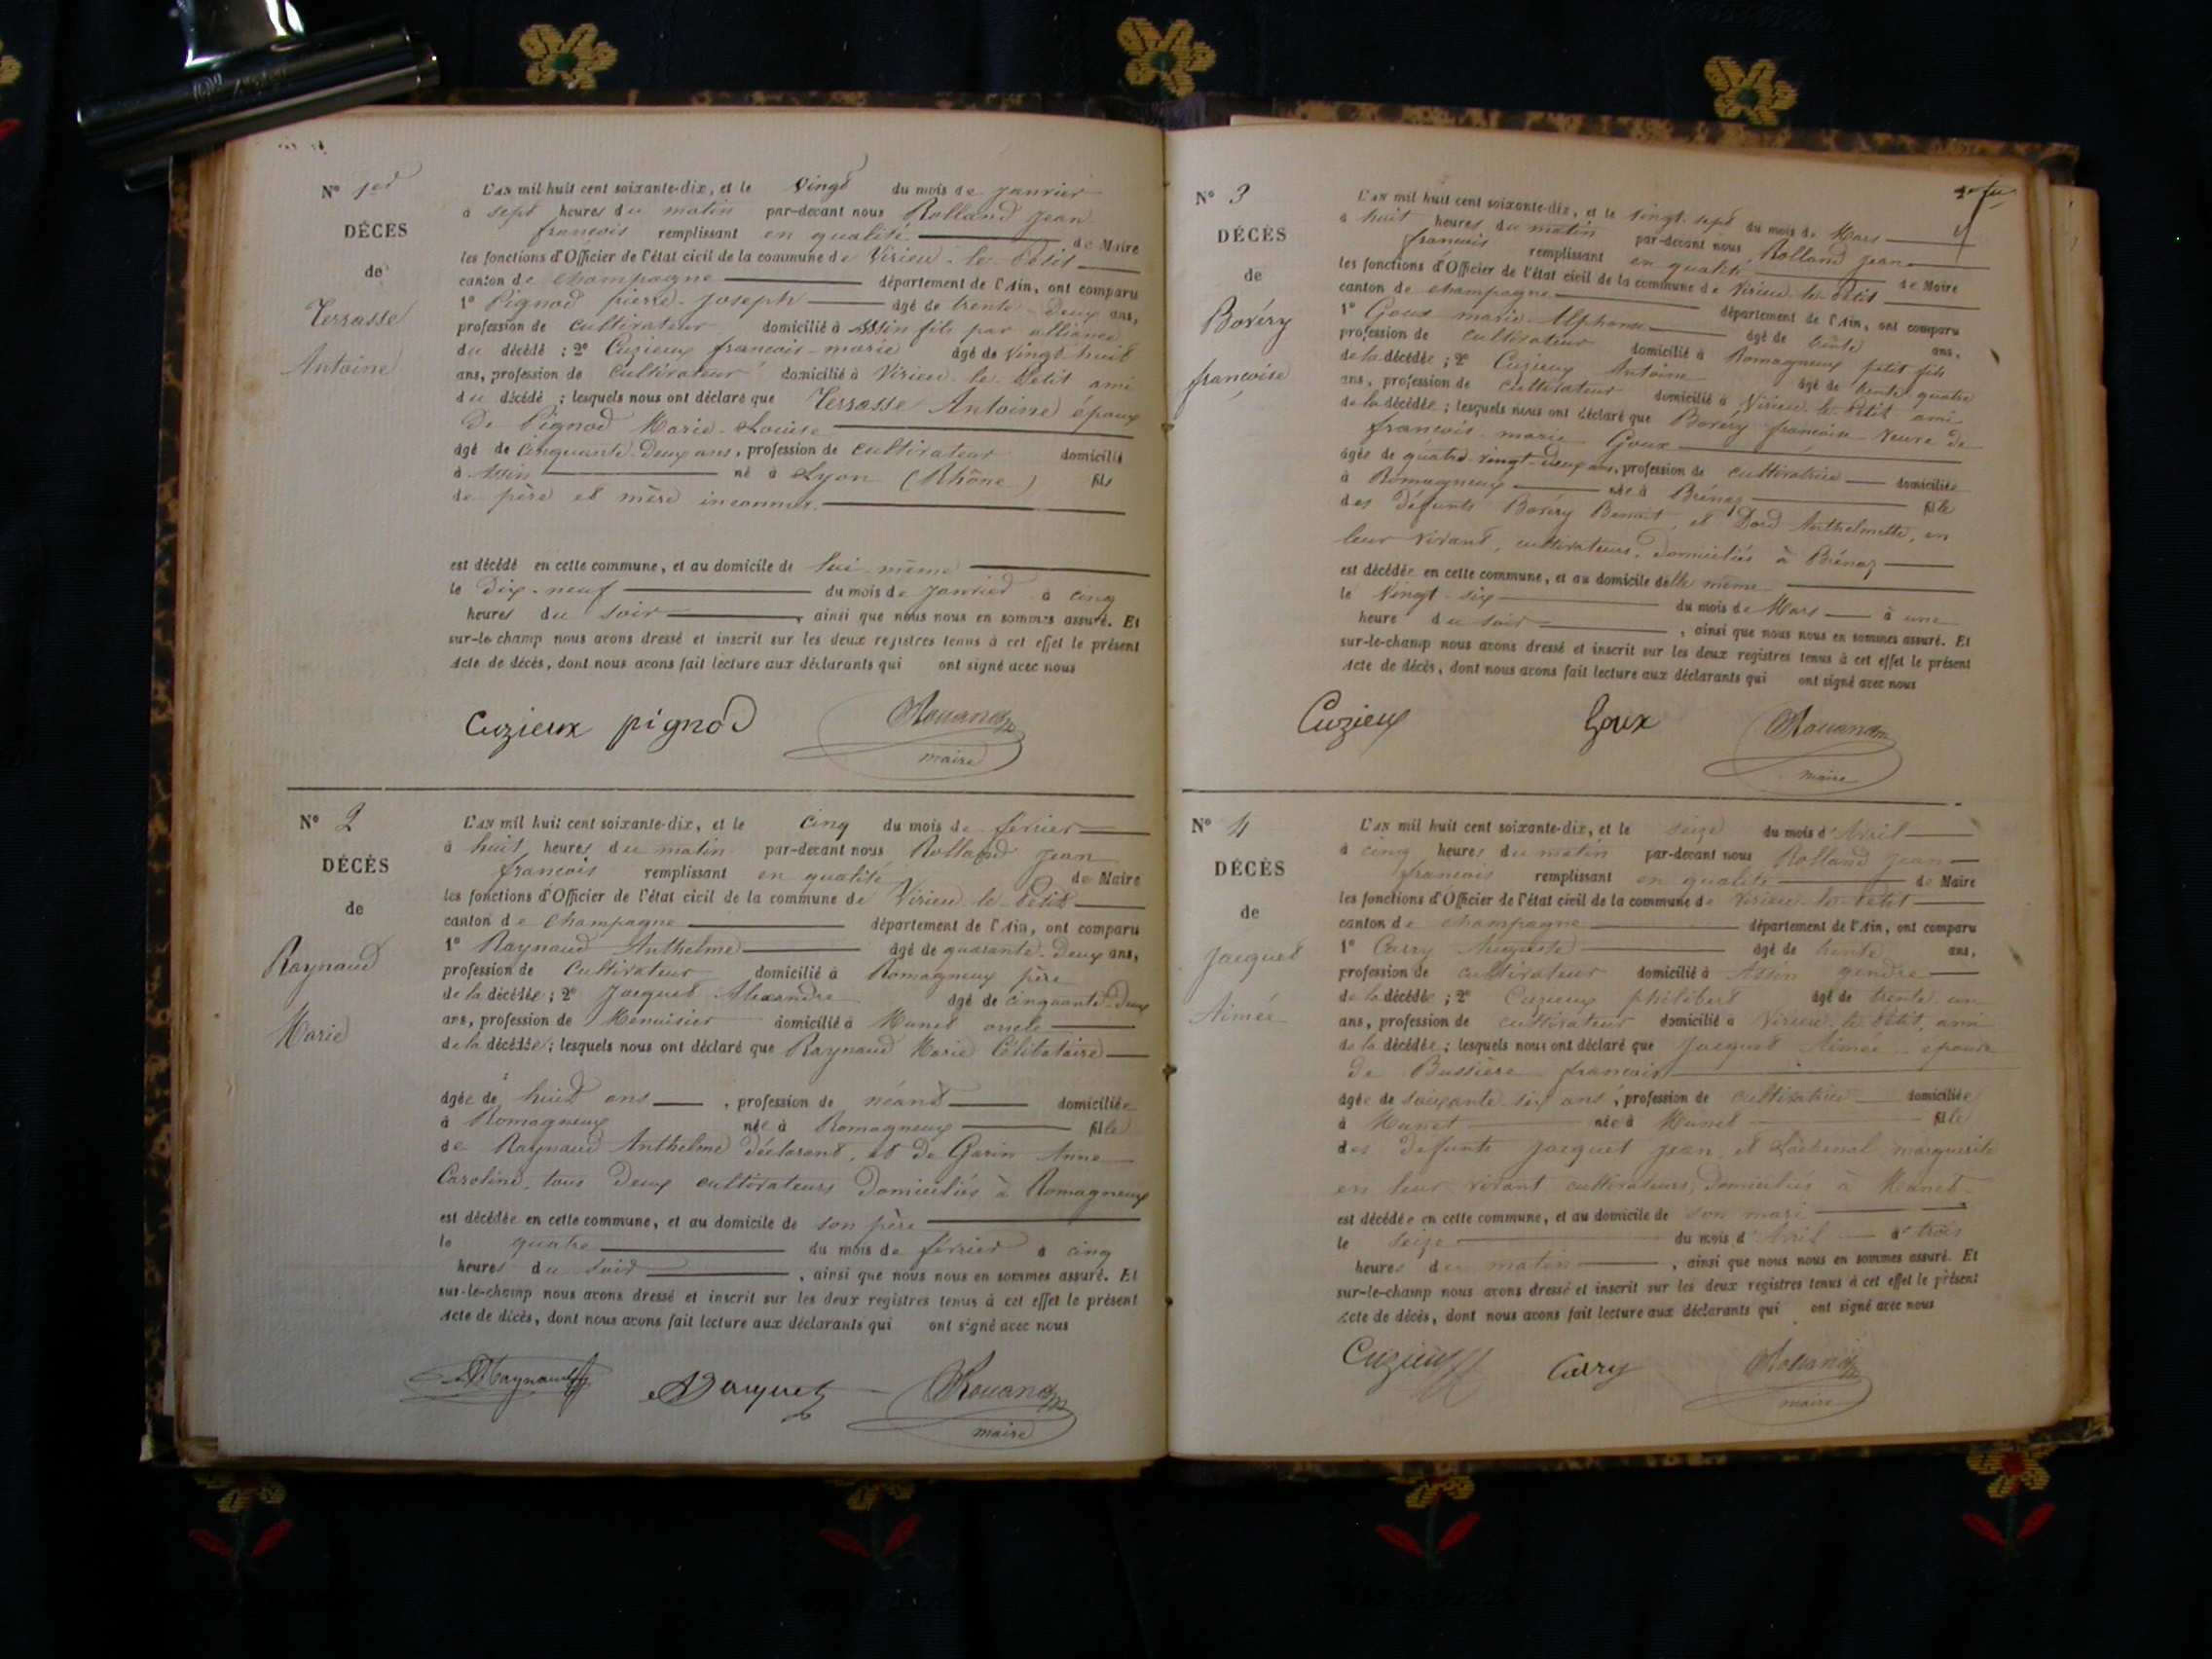 N° 1er
DÉCÈS
de
Terrasse
Antoine
L'AN mil huit cent soixante-dix, et le vingt du mois de janvier
à sept heures du matin par-devant nous Rolland Jean
françois remplissant en qualité de Maire
les fonctions d'Officier de l'état civil de la commune de Virieu-le-Petit
canton de Champagne département de l'Ain, ont comparu
1° Pignod pierre-joseph âgé de trente-deux ans,
profession de cultivateur domicilié à Assin fils par alliance
du décédé ; 2° Cuzieux françois-marie âgé de vingt-huit
ans, profession de cultivateur domicilié à Virieu-le-Petit ami
du décédé ; lesquels nous ont déclaré que Terrasse Antoine époux
de Pignod Marie-Louise
âgé de cinquante-deux ans, profession de cultivateur domicilié
à Assin né à Lyon (Rhône) fils
de père et mère inconnus.
est décédé en cette commune, et au domicile de lui-même
le dix-neuf du mois de janvier à cinq
heures du soir, ainsi que nous nous en sommes assuré. Et
sur-le-champ nous avons dressé et inscrit sur les deux registres tenus à cet effet le présent
acte de décès, dont nous avons fait lecture aux déclarants qui ont signé avec nous
Cuzieux pignod
maire
N° 2
DÉCÈS
de
Raynaud
Marie
L'AN mil huit cent soixante-dix, et le cinq du mois de février
à huit heures du matin par-devant nous Rolland Jean
françois remplissant en qualité de Maire
les fonctions d'Officier de l'état civil de la commune de Virieu-le-Petit
canton de Champagne département de l'Ain, ont comparu
1° Raynaud Anthelme âgé de quarante-deux ans,
profession de cultivateur domicilié à Romagneux père
de la décédée ; 2° Jacquet Alexandre âgé de cinquante-deux
ans, profession de Menuisier domicilié à Munet oncle
de la décédée ; lesquels nous ont déclaré que Raynaud Marie Célibataire
âgée de huit ans, profession de néant domiciliée
à Romagneux née à Romagneux fille
de Raynaud Anthelme déclarant, et de Garin Anne
Caroline, tous deux cultivateurs domiciliés à Romagneux
est décédée en cette commune, et au domicile de son père
le quatre du mois de février à cinq
heures du soir, ainsi que nous nous en sommes assuré. Et
sur-le-champ nous avons dressé et inscrit sur les deux registres tenus à cet effet le présent
acte de décès, dont nous avons fait lecture aux déclarants qui ont signé avec nous
Raynaud Jacquet
maire
N° 3
DÉCÈS
de
Boréry
françoise
L'AN mil huit cent soixante-dix, et le vingt-sept du mois de Mars
à huit heures du matin par-devant nous Rolland Jean
françois remplissant en qualité de Maire
les fonctions d'Officier de l'état civil de la commune de Virieu-le-Petit
canton de Champagne département de l'Ain, ont comparu
1° Goux marie-Alphonse âgé de trente ans,
profession de cultivateur domicilié à Romagneux petit fils
de la décédée ; 2° Cuzieux Antoine âgé de trente-quatre
ans, profession de cultivateur domicilié à Virieu-le-Petit ami
de la décédée ; lesquels nous ont déclaré que Boréry françoise veuve de
françois-marie Goux
âgée de quatre-vingt-deux ans, profession de cultivatrice domiciliée
à Romagneux née à Brénaz fille
des défunts Boréry Benoit, et Anthelmette, en
leur vivant, cultivateurs, domiciliés à Brénaz
est décédée en cette commune, et au domicile d'elle même
le vingt-six du mois de Mars à une
heure du soir, ainsi que nous nous en sommes assuré. Et
sur-le-champ nous avons dressé et inscrit sur les deux registres tenus à cet effet le présent
acte de décès, dont nous avons fait lecture aux déclarants qui ont signé avec nous
Cuzieux Goux
maire
N° 4
DÉCÈS
de
Jacquet
Aimée
L'AN mil huit cent soixante-dix, et le seize du mois d'Avril
à cinq heures du matin par-devant nous Rolland Jean
françois remplissant en qualité de Maire
les fonctions d'Officier de l'état civil de la commune de Virieu-le-Petit
canton de Champagne département de l'Ain, ont comparu
1° Carry Auguste âgé de trente ans,
profession de cultivateur domicilié à Assin gendre
de la décédée ; 2° Cuzieux philibert âgé de trente-un
ans, profession de cultivateur domicilié à Virieu-le-Petit, ami
de la décédée ; lesquels nous ont déclaré que Jacquet Aimée épouse
de Bussière françois
âgée de soixante-six ans, profession de cultivatrice domiciliée
à Munet née à Munet fille
des défunts Jacquet Jean, et marguerite
en leur vivant cultivateurs, domiciliés à Munet
est décédée en cette commune, et au domicile de son mari
le seize du mois d'Avril à trois
heures du matin, ainsi que nous nous en sommes assuré. Et
sur-le-champ nous avons dressé et inscrit sur les deux registres tenus à cet effet le présent
acte de décès, dont nous avons fait lecture aux déclarants qui ont signé avec nous
Cuzieux Carry
maire